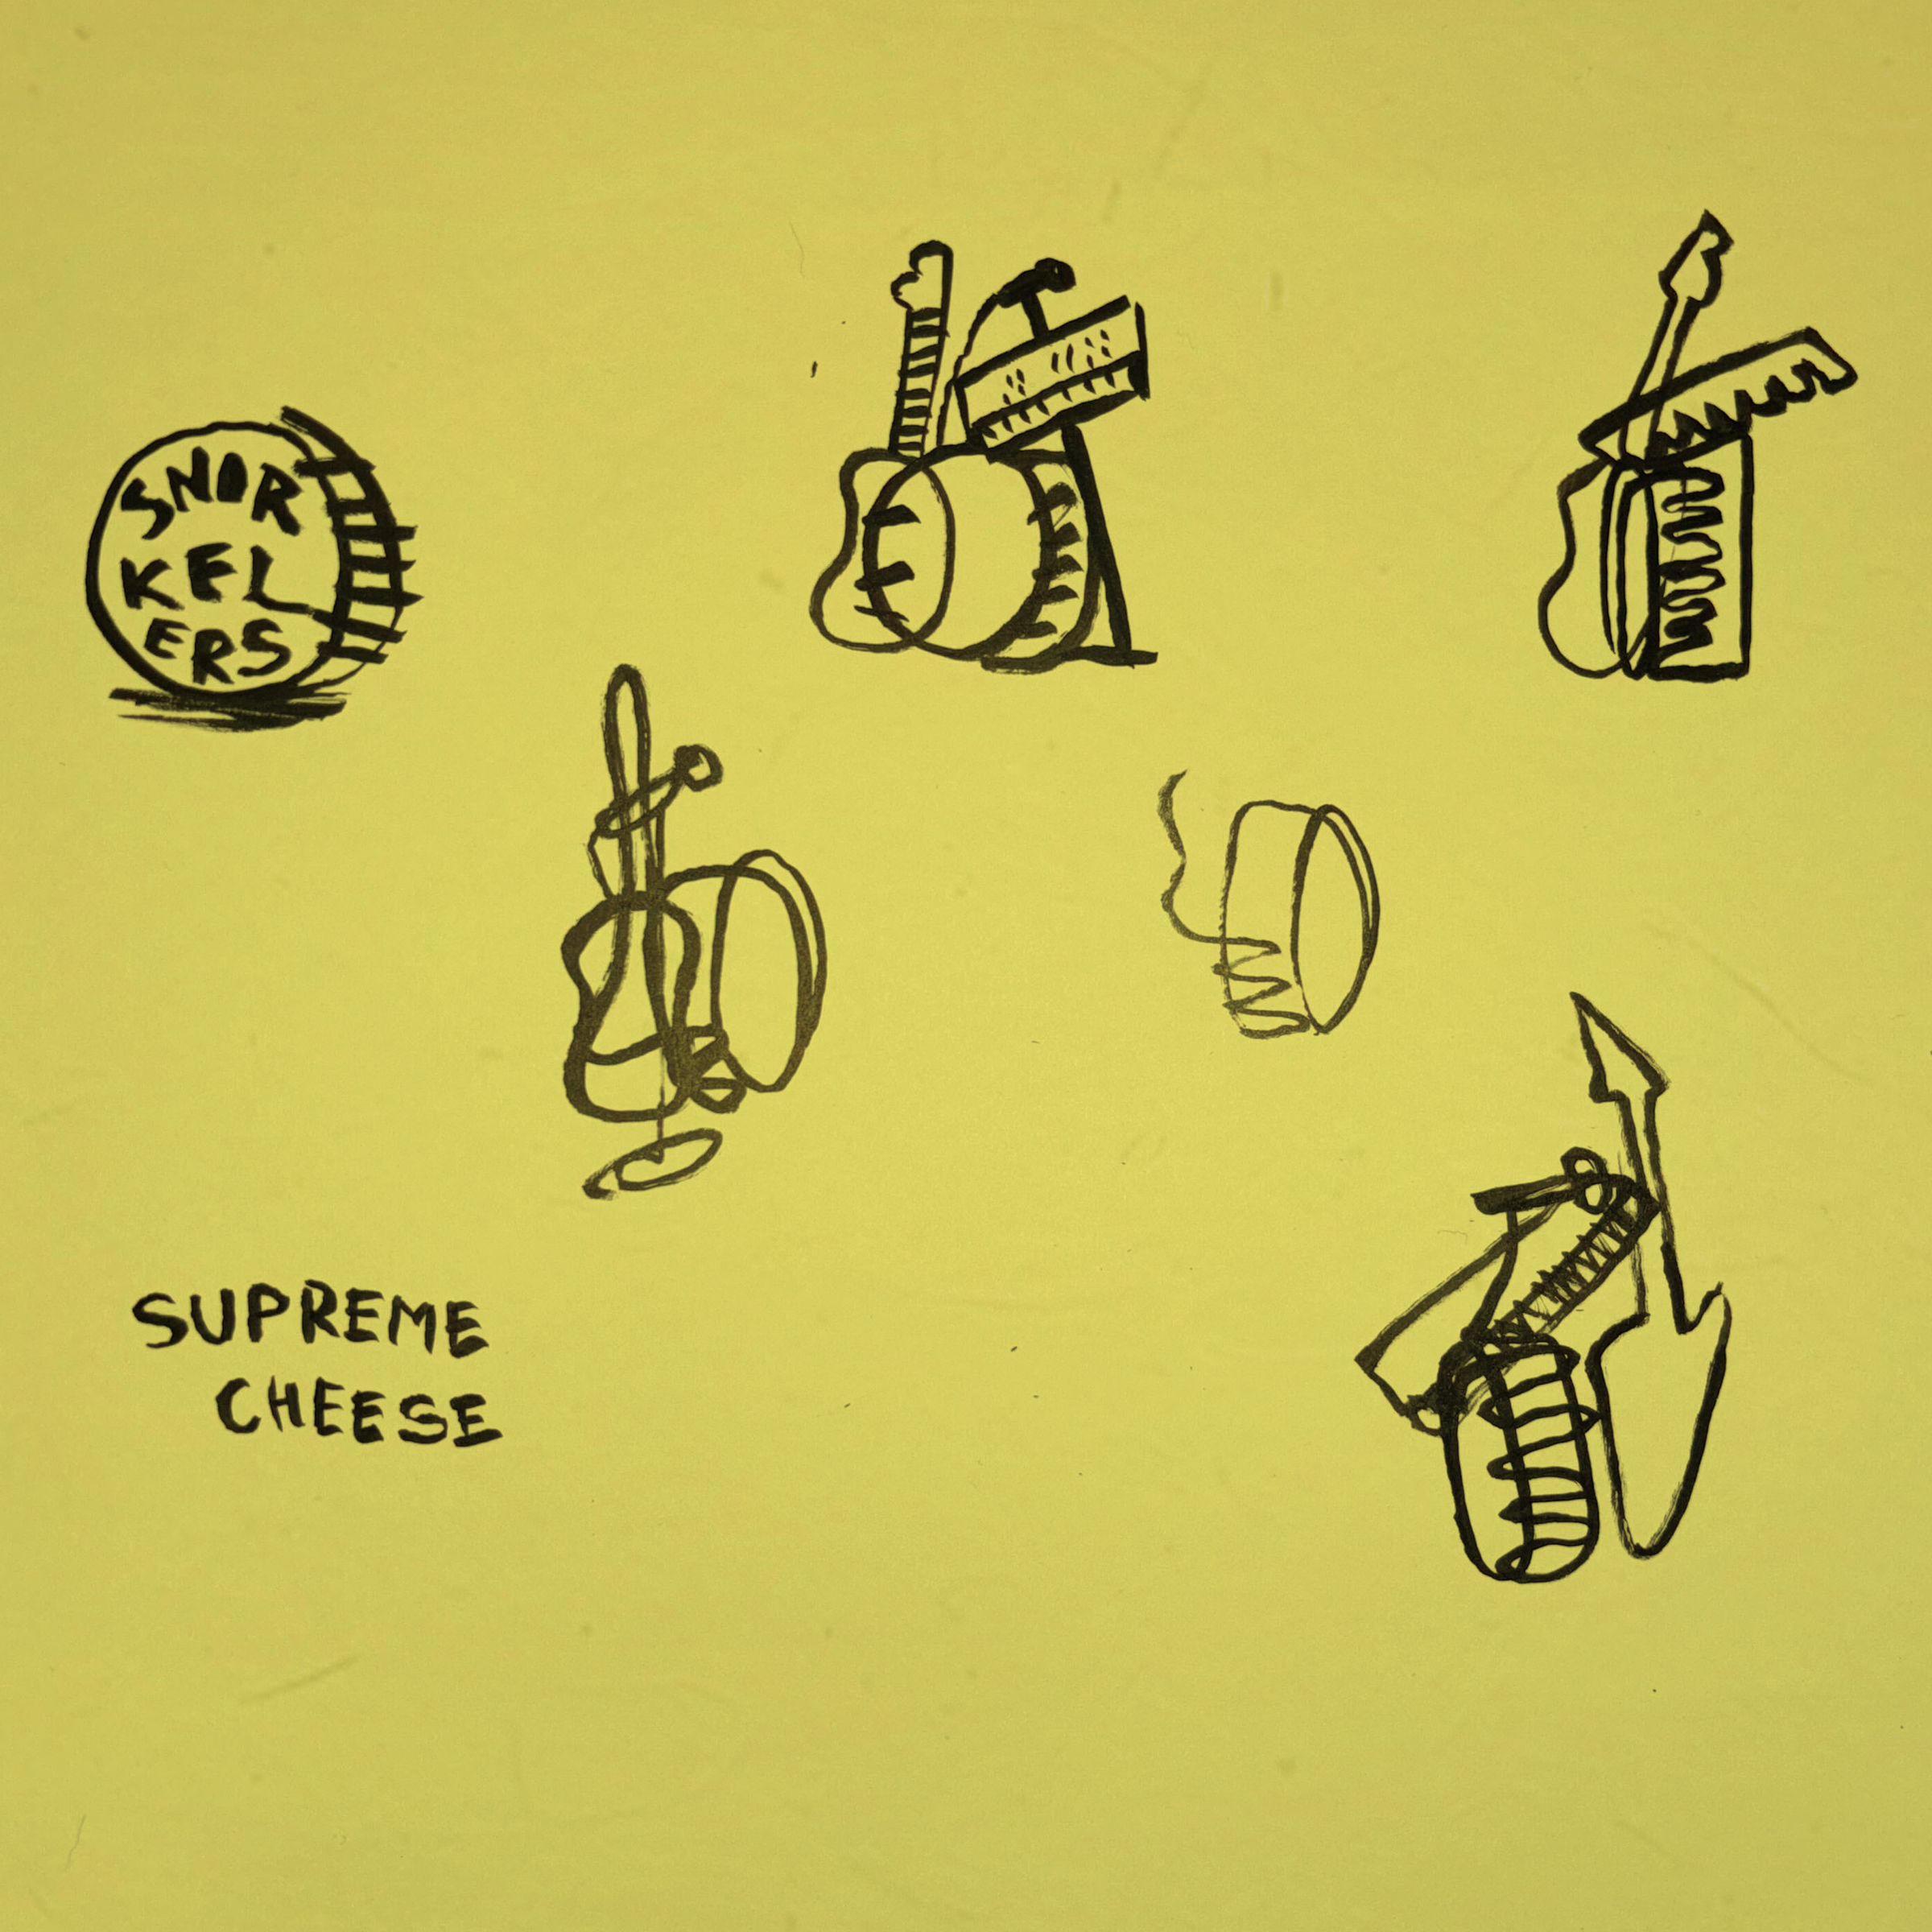 SNOR
KEL
ERS
SUPREME
CHEESE